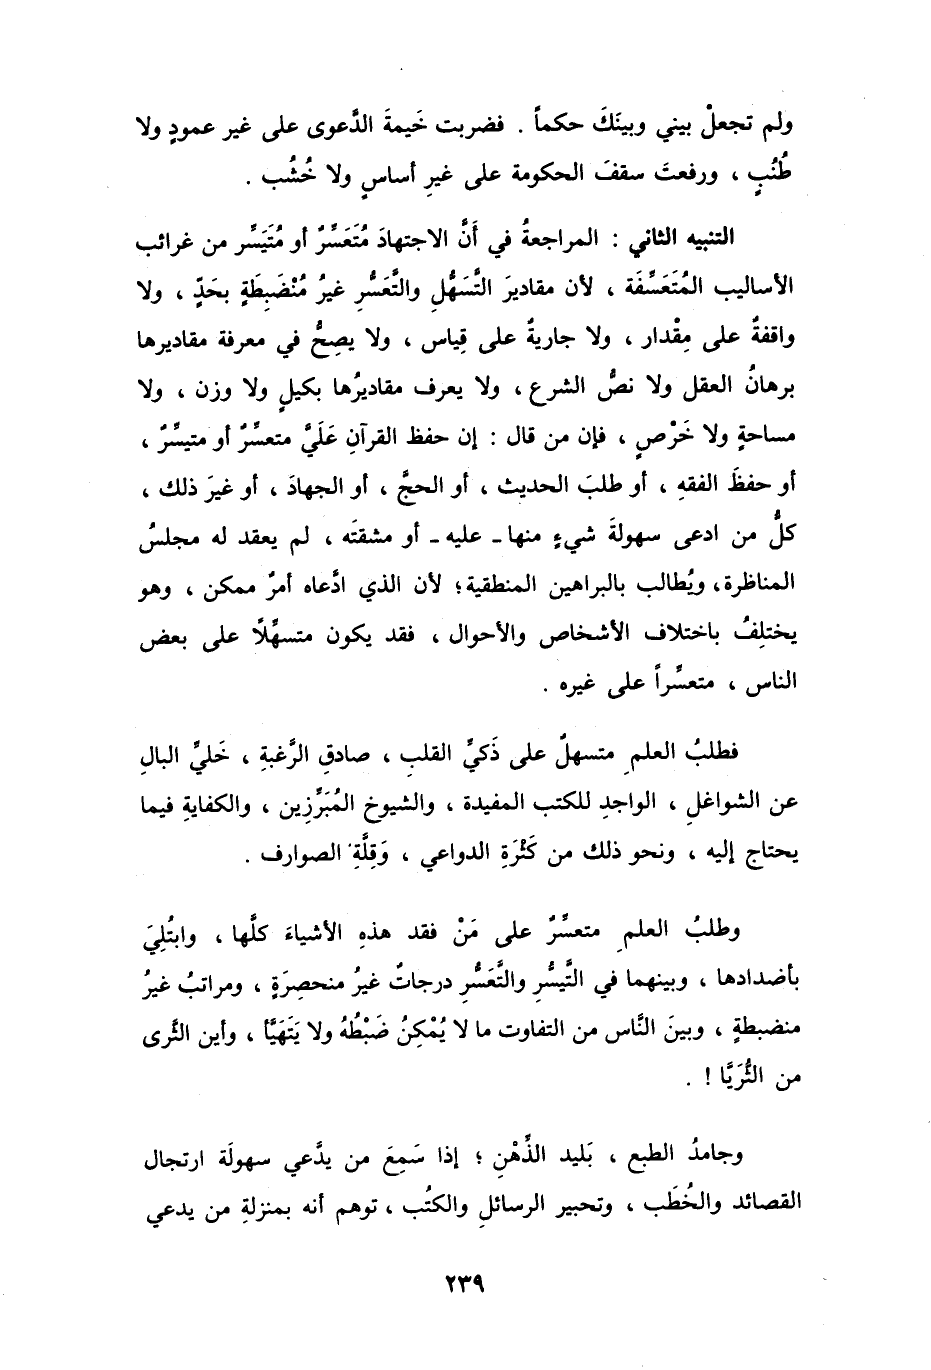 ولم تجعلْ بيني وبينَكَ حكماً . فضربت خَيمةَ الدَّعوى على غير عمودٍ ولا
طُنُبٍ ، ورفعتَ سقفَ الحكومة على غيرِ أساسٍ ولا خُشُب .
التنبيه الثاني : المراجعةُ في أَنَّ الاجتهادَ مُتَعَسِّرٌ أو مُتَيَسِّر من غرائب
الأساليب المُتَعَسِّفَة ، لأن مقاديرَ التَّسَهُّلِ والتَّعَسُّرِ غيرُ مُنْضَبِطَةٍ بحَدٍّ ، ولا
واقفةٌ على مِقْدار ، ولا جاريةٌ على قِياس ، ولا يصِحُّ في معرفة مقاديرها
برهانُ العقل ولا نصُّ الشرع ، ولا يعرف مقاديرُها بكيلٍ ولا وزن ، ولا
مساحةٍ ولا خَرْصٍ ، فإن من قال : إن حفظ القرآنِ عَلَيَّ متعسِّرٌ أو متيسِّرٌ ،
أو حفظَ الفقهِ ، أو طلبَ الحديث ، أو الحجَّ ، أو الجهادَ ، أو غيرَ ذلك ،
كلُّ من ادعى سهولةَ شيءٍ منها - عليه - أو مشقتَه ، لم يعقد له مجلسُ
المناظرة، ويُطالب بالبراهين المنطقية؛ لأن الذي ادَّعاه أمرٌ ممكن ، وهو
يختلِفُ باختلاف الأشخاص والأحوال ، فقد يكون متسهِّلًا على بعض
الناس ، متعسِّراً على غيره .
فطلبُ العلمِ متسهلٌ على ذَكيِّ القلبِ ، صادقِ الرَّغبةِ ، خَليِّ البالِ
عن الشواغلِ ، الواجدِ للكتب المفيدة ، والشيوخ المُبَرِّزِين ، والكفايةِ فيما
يحتاج إليه ، ونحو ذلك من كَثْرَةِ الدواعي ، وَقِلَّةِ الصوارف .
وطلبُ العلمِ متعسِّرٌ على مَنْ فقد هذهِ الأشياءَ كلَّها ، وابتُلِيَ
بأضدادها ، وبينهما في التَّيسُّرِ والتَّعَسُّرِ درجاتٌ غيرُ منحصِرَةٍ ، ومراتبُ غيرُ
منضبطةٍ ، وبينَ النَّاس من التفاوت ما لا يُمْكِنُ ضَبْطُهُ ولا يَتَهَيَّأ ، وأين الثَّرى
من الثُّرَيَّا ! .
وجامدُ الطبع ، بَليد الذِّهْنِ ؛ إذا سَمِعَ من يدَّعي سهولَة ارتجال
القصائد والخُطَب ، وتحبير الرسائلِ والكتُب ، توهم أنه بمنزلةِ من يدعي
٢٣٩